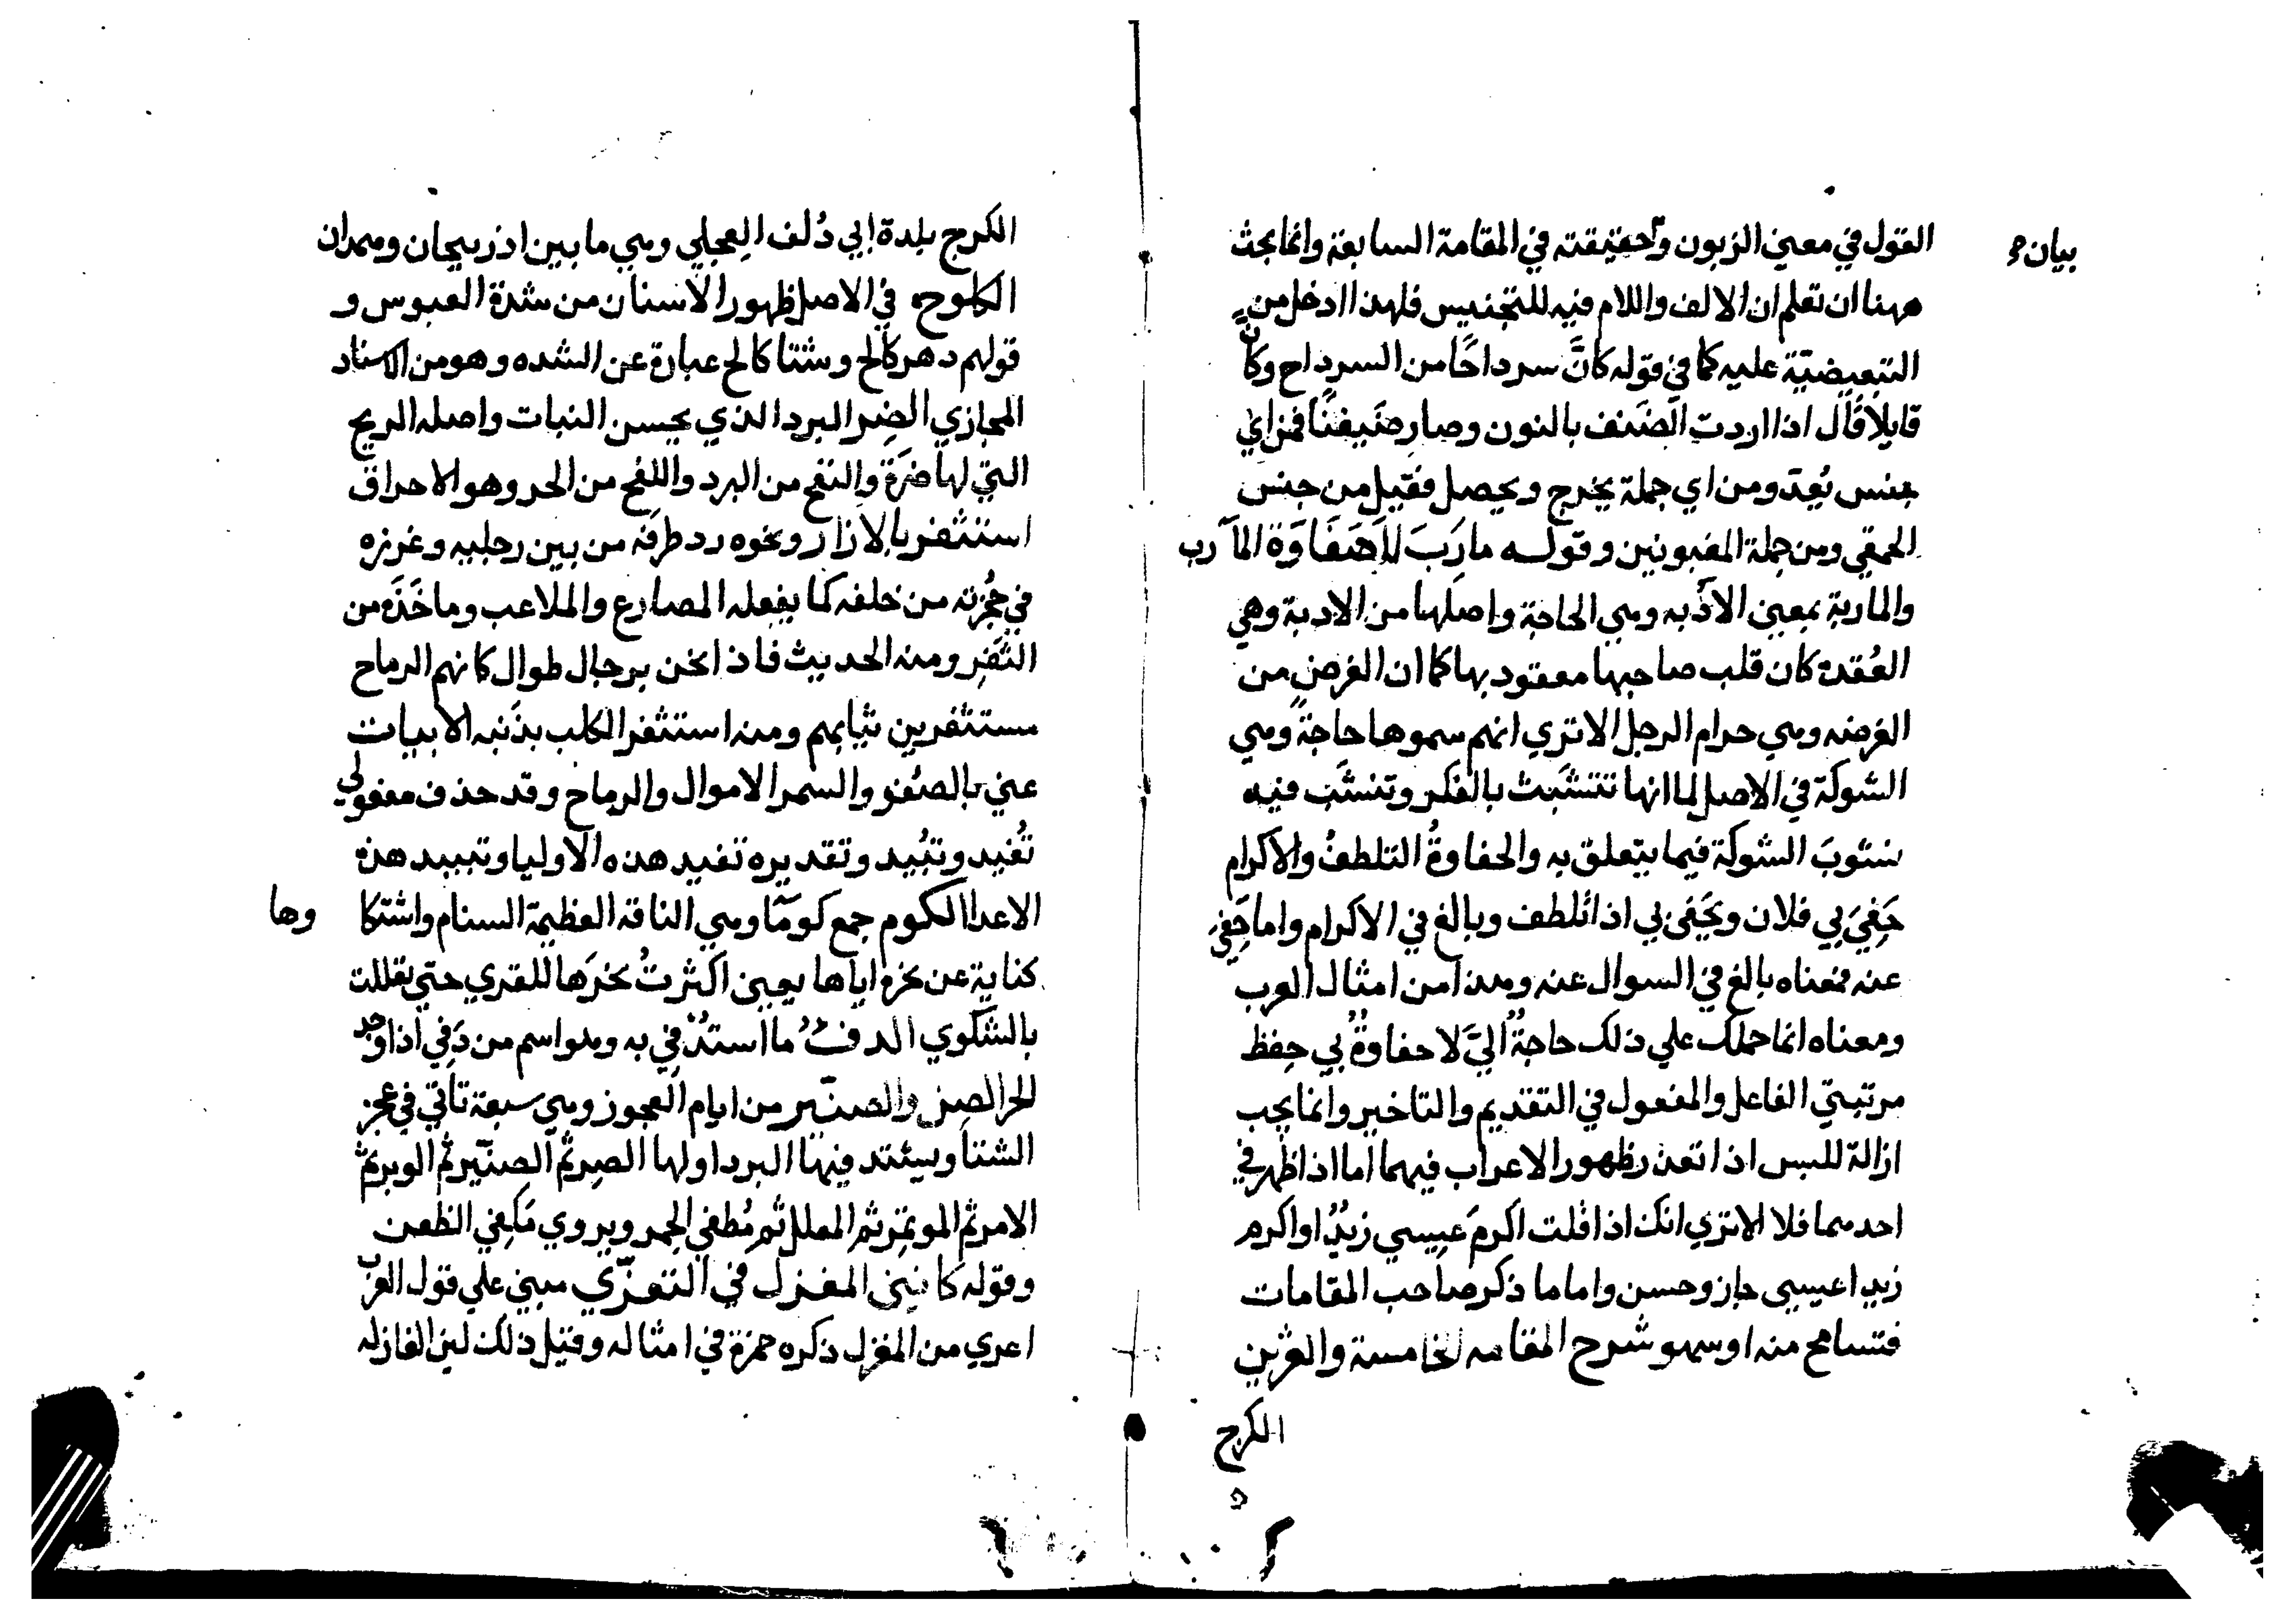 القول في معني الزبون وحقيقته في المقامة السابقة وانما بحث
بيان
ههنا ان تعلم ان الالف واللام فيه للتجنيس فلهذا ادخل من
التبعيضيّة عليه كما في قوله كانَّ سرداحًا من السرداح وكان
قايلا قال اذا اردت الضنف بالنون وصار ضيفنًا فمن اي
جنس تُعدّ ومن اي جملة يخرج ويحصل فقيل من جنس
الحمقي ومن جملة المغبونين وقوله مارَبَ لاحَفَاوَة المآرب
والماربة بمعني الاربه وهي الحاجة واصلها من الاربة وهي
العُقدة كان قلب صاحبها معقود بها كما ان الغرض من
الغرضه وهي حزام الرجل الا تري انهم سموها حاجةً وهي
الشوكة في الاصل لما انها تتشبث بالفكر وتنشَب فيه
نشوبَ الشوكة فيما يتعلق به والحفاوةُ التلطفُ والاكرام
حَفِيَ بي فلان ويَحْفَى بي اذا تلطف وبالغ في الاكرام واما حَفِيَ
عنه فمعناه بالغ في السوال عنه وهذا من امثال العرب
ومعناه انما حملك علي ذلك حاجةٌ اليَّ لا حفاوةٌ بي حفظ
مرتبتي الفاعل والمفعول في التقديم والتاخير وانما يجب
ازالة للبس اذا تعذر ظهور الاعراب فيهما اما اذا ظهر في
احدهما فلا الا تري انك اذا قلت اكرمَ عيسي زيدٌ او اكرم
زيدا عيسي جاز وحسن واما ما ذكر صاحب المقامات
فتسامح منه او سهو شرح المقامه الخامسة والعشرين
الكرج
الكرج بلدة ابي دُلف العجلي وهي ما بين اذربيجان وهمدان
الكلوح في الاصل ظهور الاسنان من شدة العبوس و
قولهم دهر كالح وشتا كالح عبارة عن الشده وهو من الاسناد
المجازي الضِر البرد الذي يحسن النبات واصله الريح
التي لها ضرّة والنفح من البرد واللفح من الحر وهو الاحراق
استثفر بالازار ونحوه رد طرفه من بين رجليه وغرزه
في حُجزته من خلفه كما يفعله المصارع والملاعب وماخَذَه من
الثَفَرِ ومنه الحديث فاذا نحن برجال طوال كانهم الرماح
مستثفرين ثيابهم ومنه استثفر الكلب بذنَبه الابيات
عني بالصُفر والسمر الاموال والرماح وقد حذف مفعولي
تُفيد وتُبيد وتقديره تفيد هذه الاوليا وتبيد هذه
الاعدا الكوم جمع كومَا وهي الناقة العظيمة السنام واشتكا وها
كناية عن نحره اياها يعني اكثرتُ نحرَها للقري حتي تقللت
بالشكوي الدفءُ ما استدُفي به وهو اسم من دَفِي اذا وجد
الحر الصِن والصنّبر من ايام العجوز وهي سبعة تاتي في عجز
الشتا ويشتد فيها البرد اولها الصِر ثم الصِنّبر ثم الوبر ثم
الامر ثم الموتمر ثم المعلل ثم مُطفي الجمر ويروي مُكفي الظعن
وقوله كانني المغزل في التعرّي مبني علي قول العرب
اعري من المغزل ذكره حمزة في امثاله وقيل ذلك لين الغازله